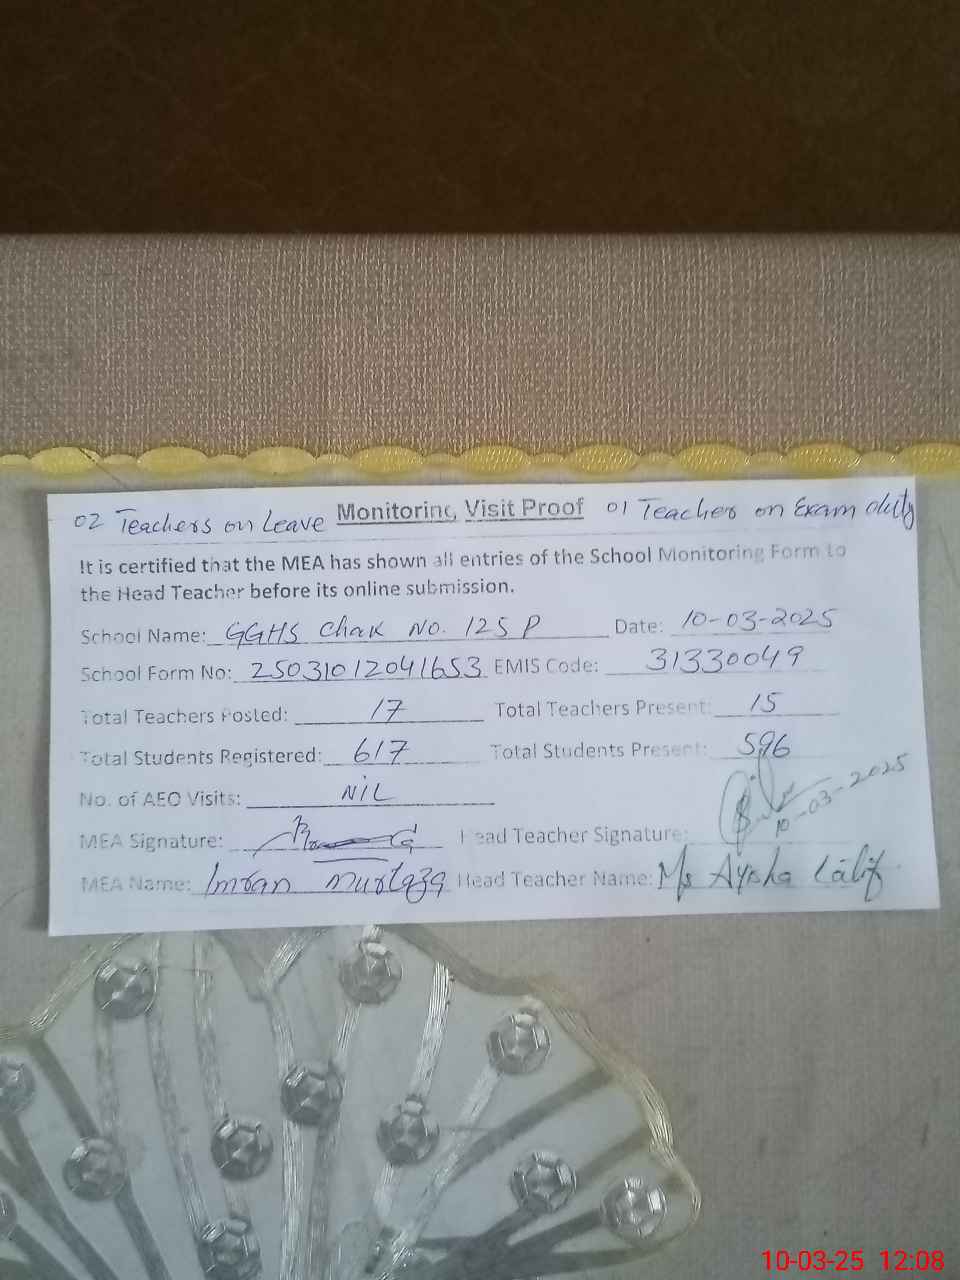 02 Teachers on Leave Monitoring Visit Proof 01 Teacher on Exam duty
It is certified that the MEA has shown all entries of the School Monitoring Form to
the Head Teacher before its online submission.
School Name: GGHS Chak No. 125 P Date: 10-03-2025
School Form No: 25031012041653 EMIS Code: 31330049
Total Teachers Posted: 17 Total Teachers Present: 15
Total Students Registered: 617 Total Students Present: 596
No. of AEO Visits: NIL
MEA Signature: Head Teacher Signature: 10-03-2025
MEA Name: Imran Murtaza Head Teacher Name: Ms Ayisha Latif
10-03-25 12:08